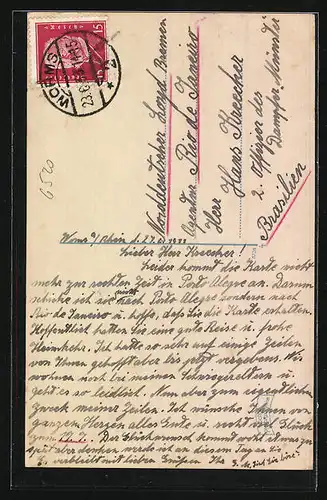 WORMS
15
6520
Norddeutscher Lloyd Bremen
Agentur Rio de Janeiro
Herr Hans Kreecher
2. Offizier des
Dampfer "Minden"
Brasilien
Worms a/Rhein d.
Lieber Herr Kreecher!
Leider kommt die Karte nicht
mehr zur rechten Zeit in Porto Alegre an. Darum
schicke ich sie nicht nach Porto Alegre sondern nach
Rio de Janeiro u. hoffe, daß Sie die Karte erhalten.
Hoffentlich hatten Sie eine gute Reise u. frohe
Heimkehr. Ich hatte so sehr auf einige Zeilen
von Ihnen gehofft aber bis jetzt vergebens. Wir
wohnen noch bei meinen Schwiegereltern u.
geht es so leidlich. Nun aber zum eigentlichen
Zweck meine Zeilen. Ich wünsche Ihnen von
ganzem Herzen alles Gute u. recht viel Glück
zum Der Glückwunsch kommt wohl etwas zu
spät aber denken werde ich an diesem Tag an Sie
Es verbleibt mit lieben Grüßen Ihr